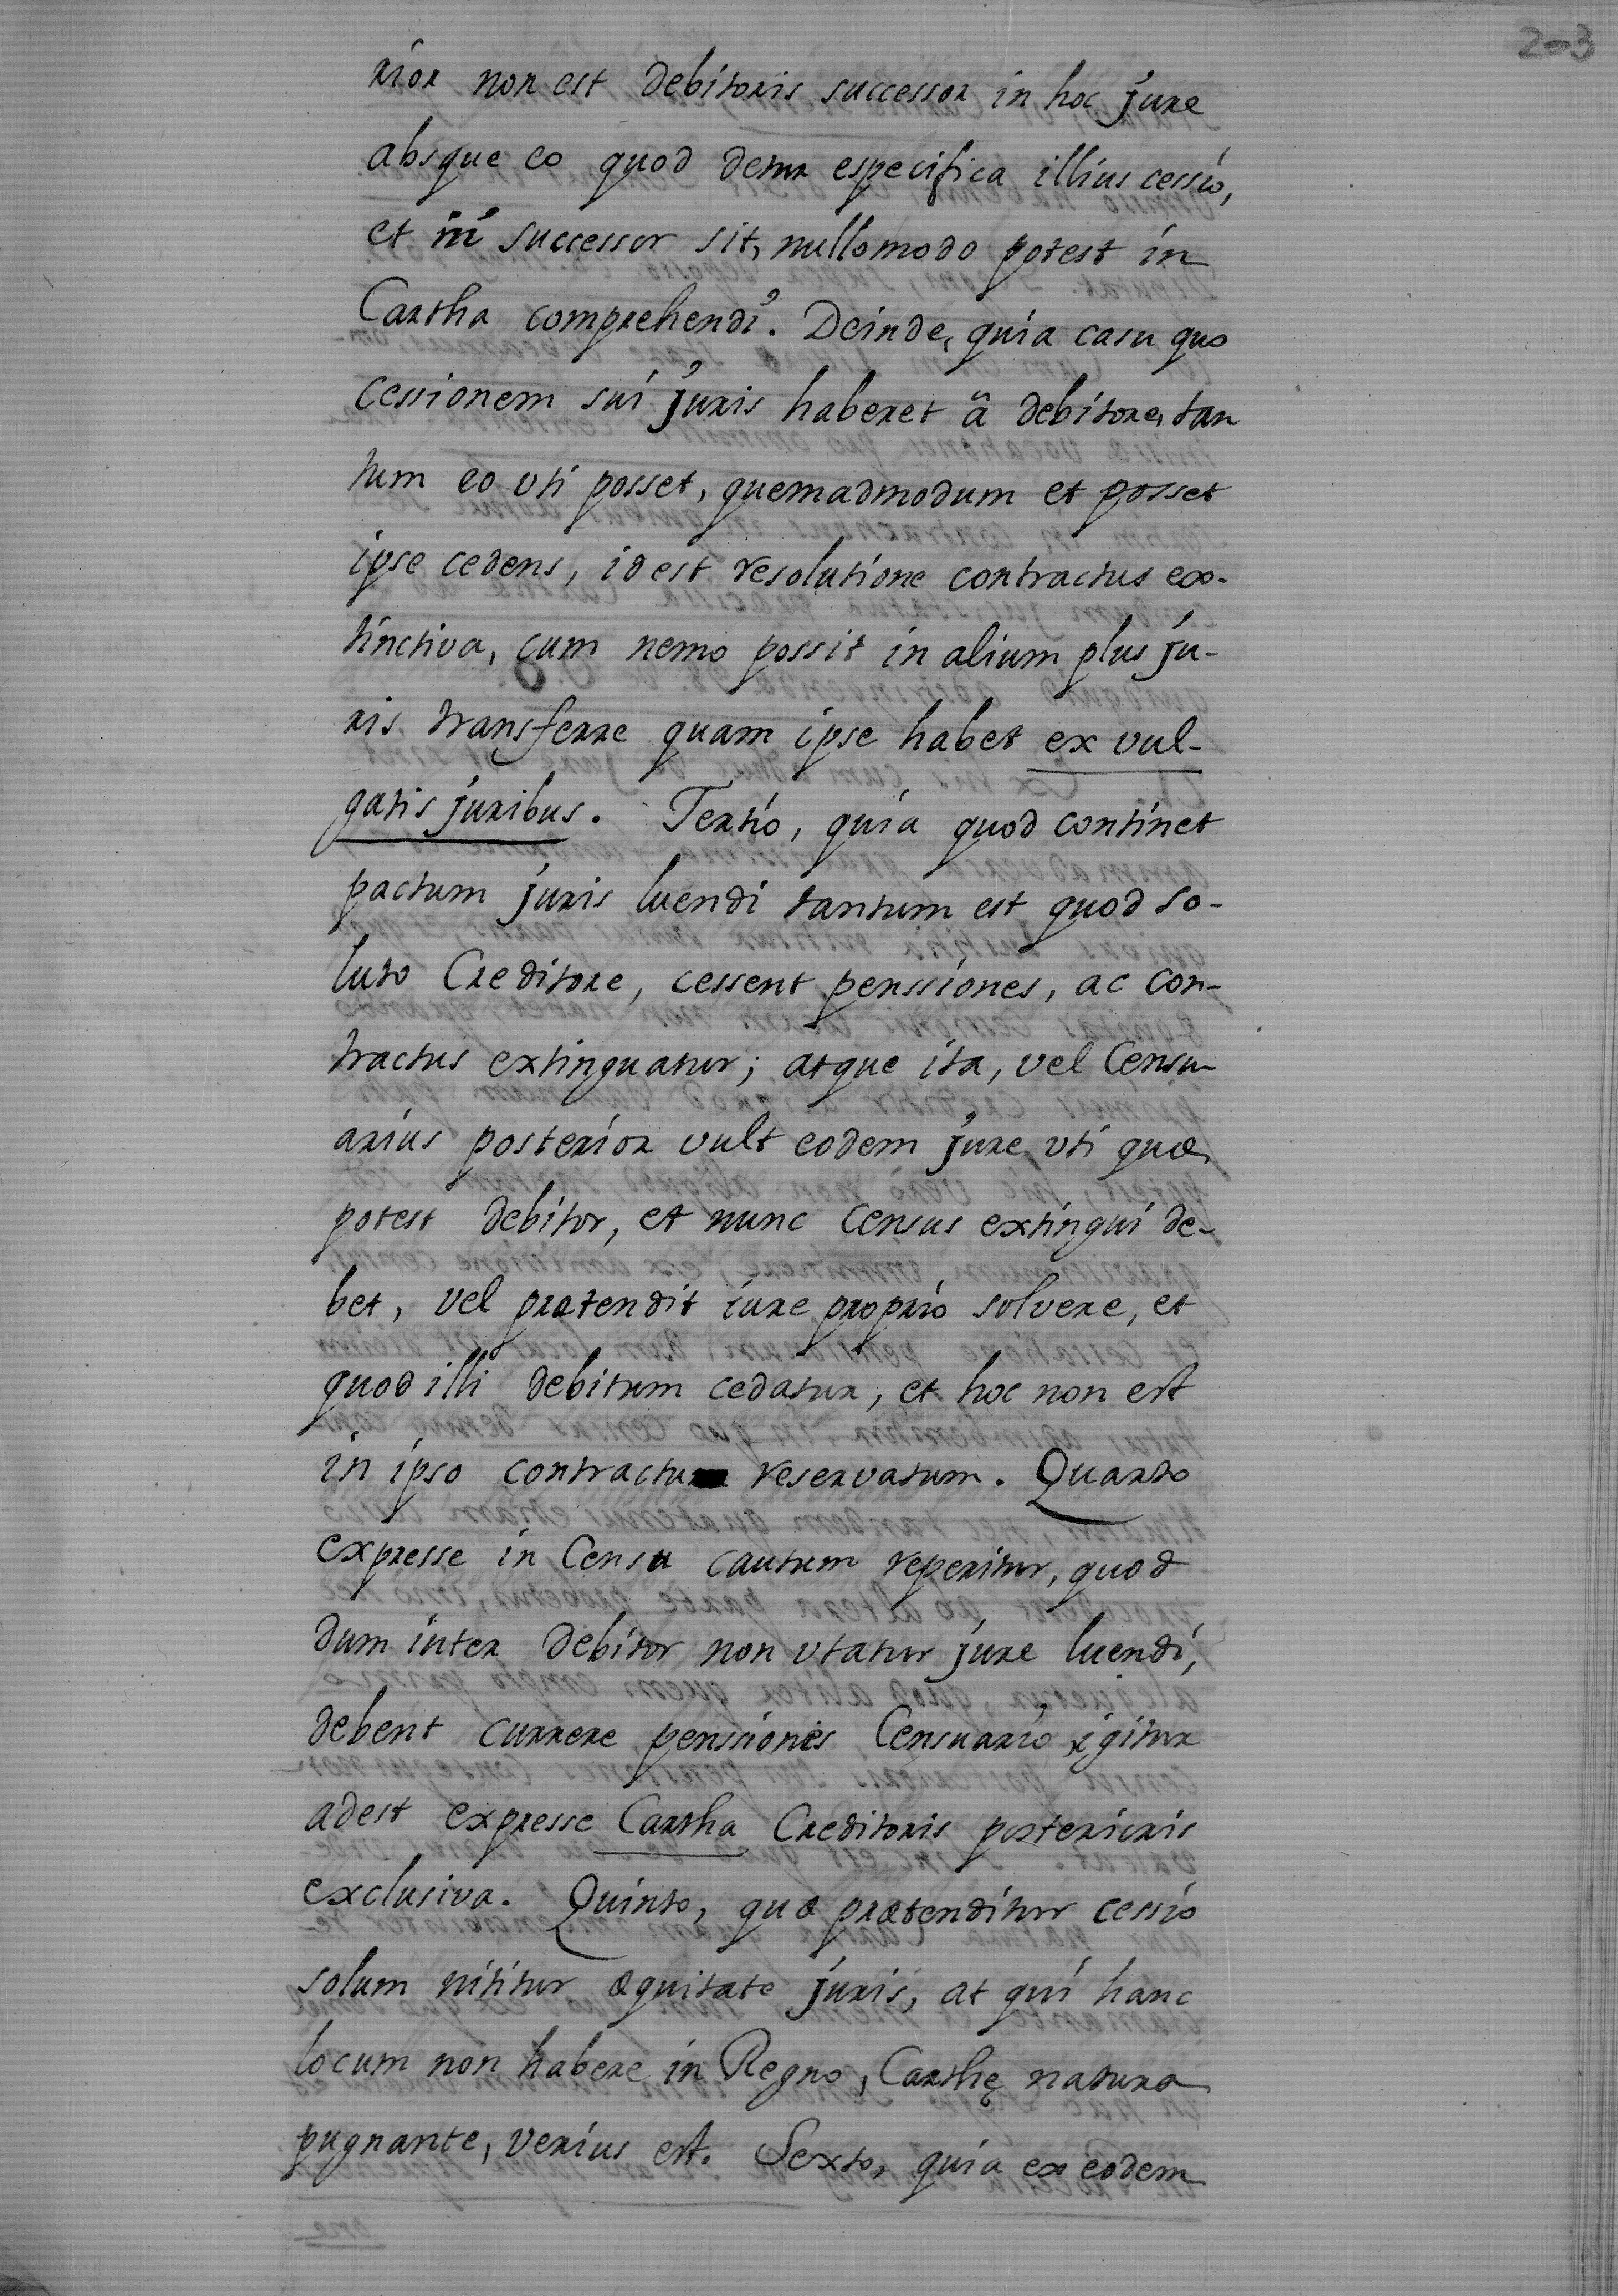 2-3
rior non est debitoris successor in hoc jure
absque eo quod detur especifica illius cessio,
et ni successor sit, nullomodo potest in
Cartha comprehendi. Deinde, quia casu quo
cessionem sui juris haberet â debitore, tan
tum eo uti posset, quemadmodum et posset
ipse cedens, id est resolutione contractus ex-
tinctiva, cum nemo possit in alium plus ju-
ris transferre quam ipse habet ex vul-
gatis juribus. Tertio, quia quod continet
pactum juris luendi tantum est quod so-
luto Creditore, cessent penssiones, ac con-
tractus extinguatur; atque ita, vel Censu
arius posterior vult eodem jure vti quo
potest debitor, et nunc census extingui de-
bet, vel prætendit iure proprio solvere, et
quod illi debitum cedatur, et hoc non est
in ipso contractu reservatum. Quarto
expresse in Censu cautum reperitur, quod
dum inter debitor non vtatur jure luendi,
debent currere penssiones Censuario igitur
adest expresse Cartha Creditoris posterioris
exclusiva. Quinto, quæ prætenditur cessio
solum nititur æquitate juris, at qui hanc
locum non habere in Regno, Carthę natura
pugnante, verius est. Sexto, quia ex eodem